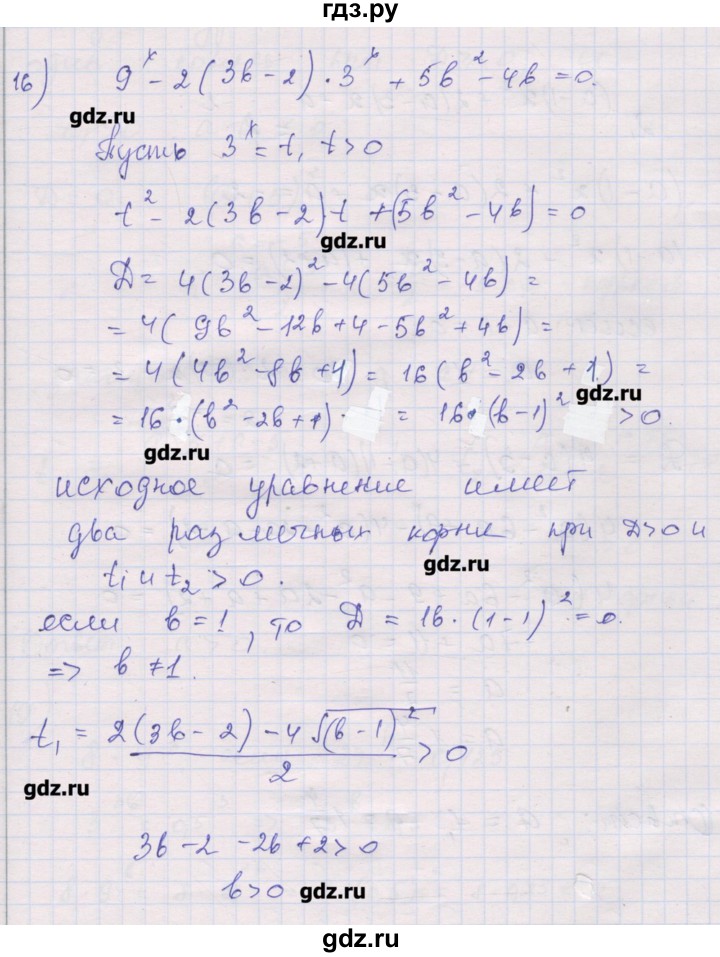 гдз.ру
16) 9ˣ - 2(3b - 2) · 3ˣ + 5b² - 4b = 0.
gdz.ru
Пусть 3ˣ = t, t > 0
t² - 2(3b - 2)t + (5b² - 4b) = 0
gdz.ru
D = 4(3b - 2)² - 4(5b² - 4b) =
= 4(9b² - 12b + 4 - 5b² + 4b) =
= 4(4b² - 8b + 4) = 16(b² - 2b + 1) =
gdz.ru
= 16 · (b² - 2b + 1) · = 16 · (b - 1)² > 0.
gdz.ru
исходное уравнение имеет
два различных корня при D > 0 и
gdz.ru
t₁ и t₂ > 0.
если b = 1, то D = 16 · (1 - 1)² = 0.
=> b ≠ 1.
t₁ = (2(3b - 2) - 4√(b - 1)²)/2 > 0
gdz.ru
3b - 2 - 2b + 2 > 0
b > 0
gdz.ru
gdz.ru